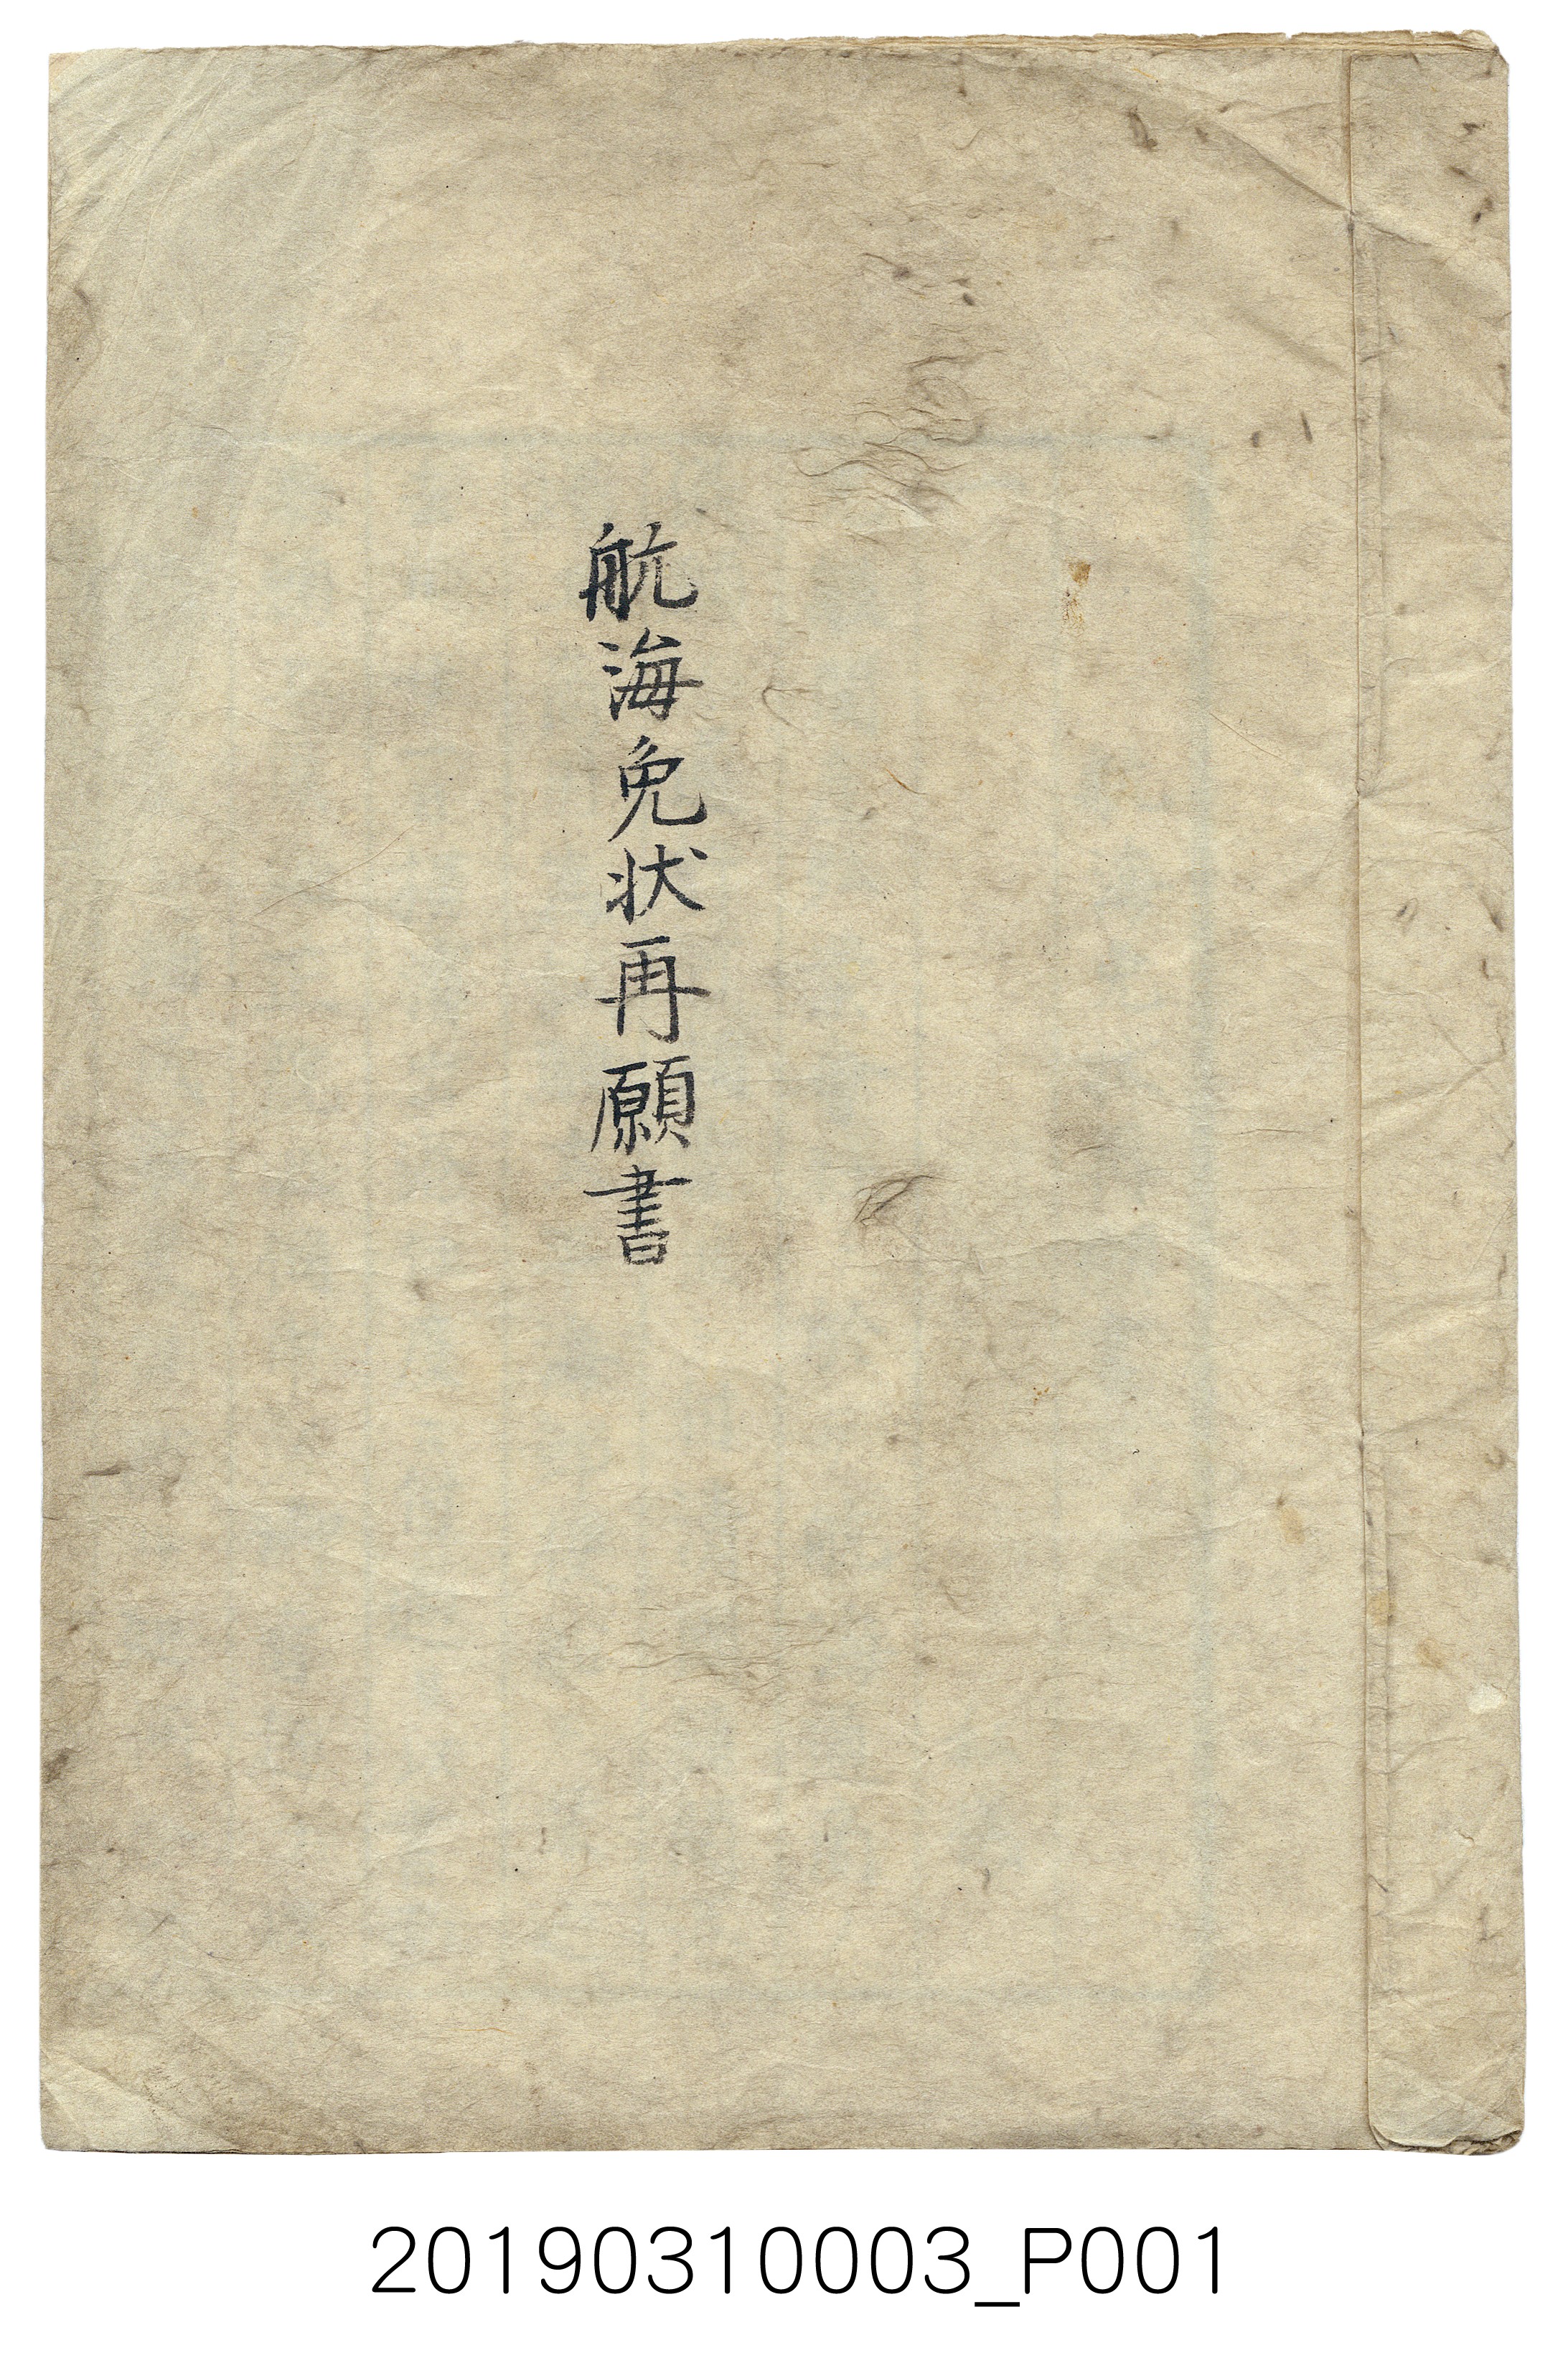 航海免状再願書
20190310003_P001